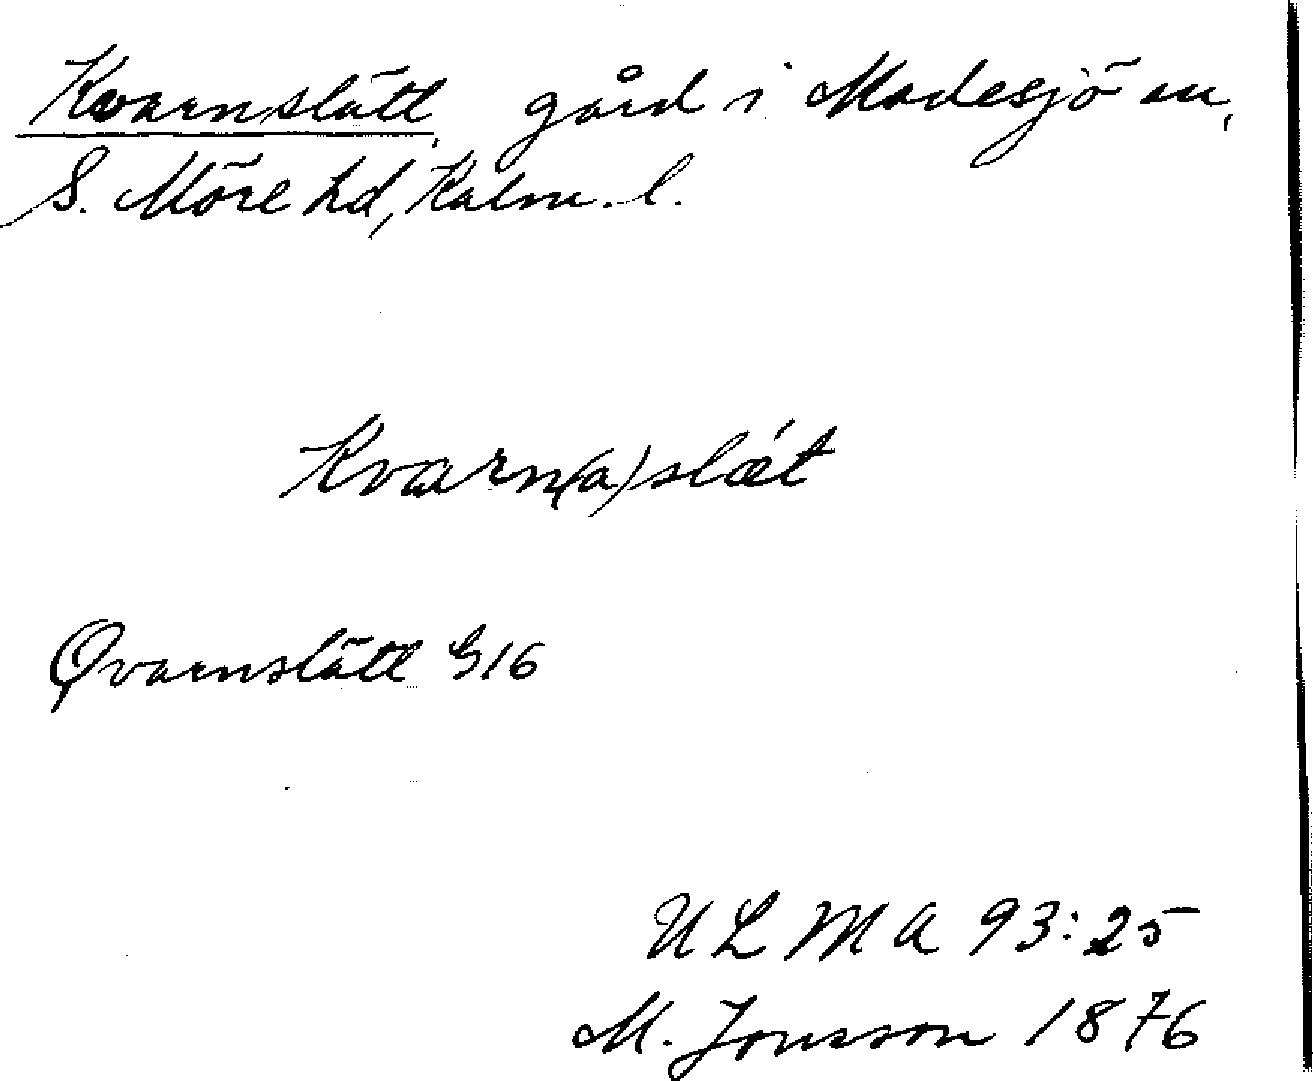 Kvarnslätt, gård i Madesjö sn,
S. Möre hd, Kalm. l.
Kvarn(a)slǽt
Qvarnslätt G16
ULMA 93:25
M. Jonsson 1876